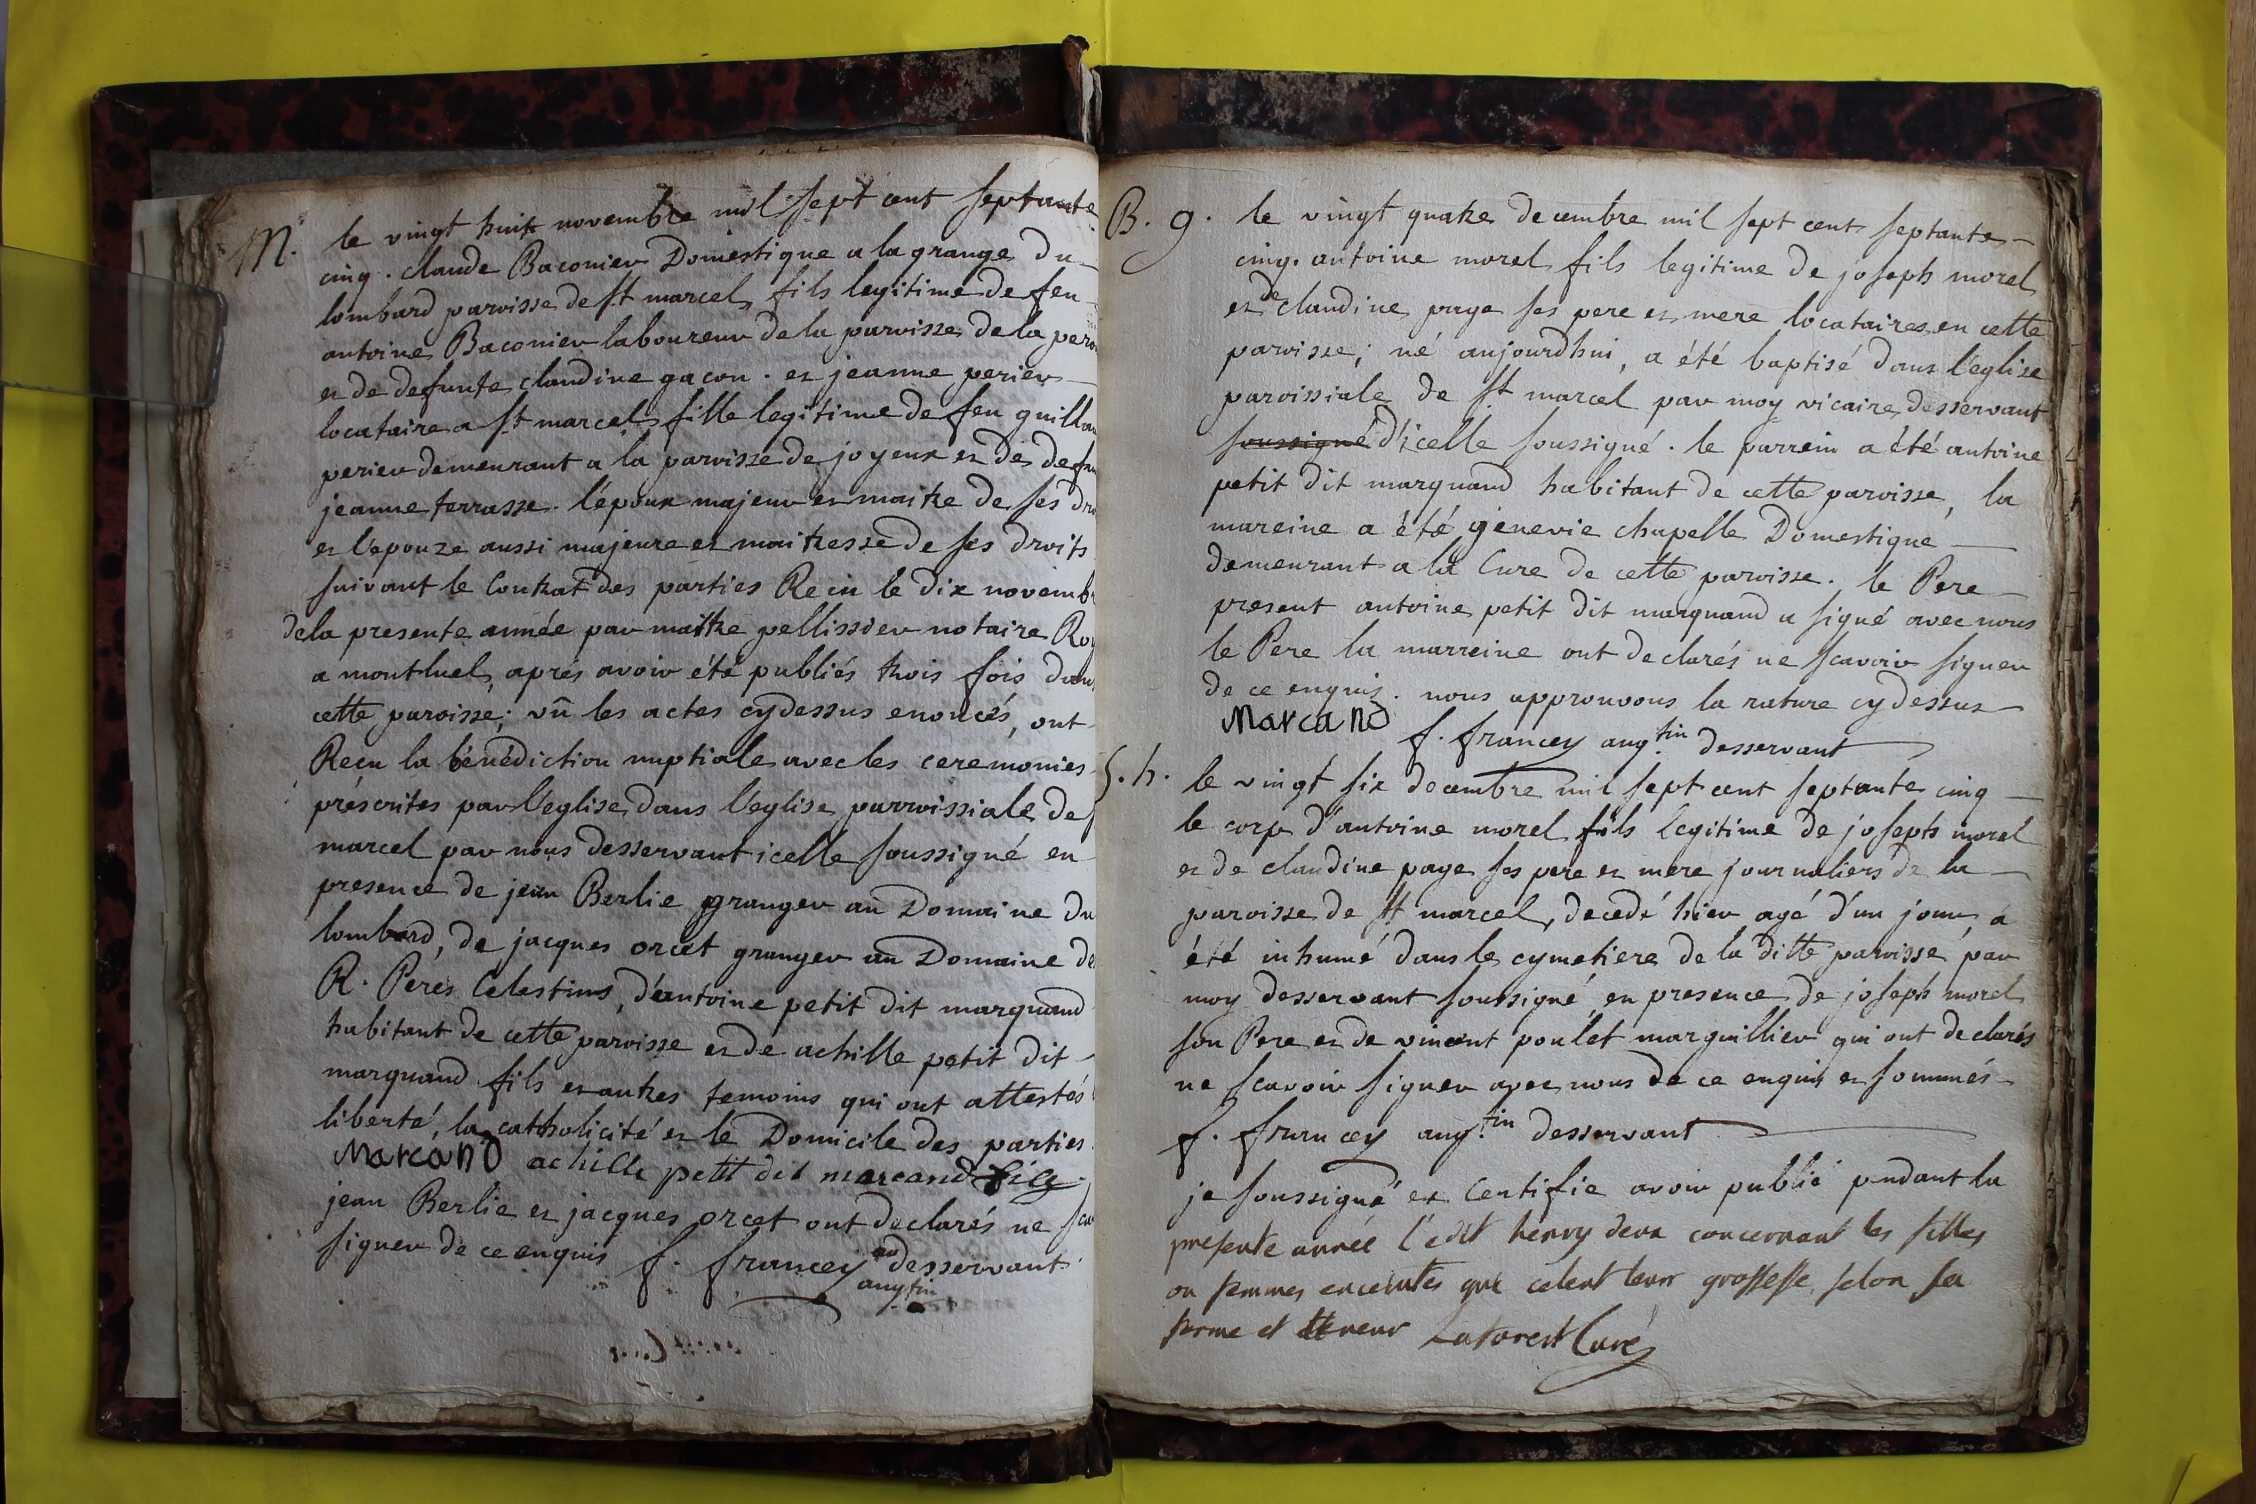 M. le vingt huit novembre mil sept cent septante
cinq. claude Baconier Domestique a la grange du
lombard paroisse de st marcel fils legitime de feu
antoine Baconier laboureur de la paroisse de la pero
et de defunte claudine gacon. et jeanne perier
locataire a st marcel fille legitime de feu guillau
perier demeurant a la paroisse de joyeux et de defun
jeanne terrasse. l'époux majeur et maitre de ses dro
et l'epouze aussi majeure et maitresse de ses droits
suivant le Contrat des parties Reçu le dix novembr
de la presente année par maitre pellissier notaire Roy
a montluel, aprés avoir été publiés trois fois dans
cette paroisse; vû les actes cydessus enoncés, ont
Reçu la bénédiction nuptiale avec les ceremonies
préscrites par l'eglise dans l'eglise parroissiale de s
marcel par nous desservant icelle soussigné en
presence de jean Berlie granger au Domaine du
lombard, de jacques orcet granger au Domaine de
R. Peres Celestins, d'antoine petit dit marquand
habitant de cette paroisse et de achille petit dit
marquand fils et autres temoins qui ont attestés
liberté, la catholicité et le Domicile des parties
Marcand achille petit dit marcand fils
jean Berlie et jacques orcet ont declarés ne sca
signer de ce enquis f. francey desservant
augtin
B. g. le vingt quatre decembre mil sept cent septante
cinq. antoine morel fils legitime de joseph morel
et de claudine page ses pere et mere locataires en cette
paroisse; né aujourdhui, a été baptisé dans l'eglise
paroissiale de st marcel par moy vicaire desservant
soussigné d'icelle soussigné. le parrein a été antoine
petit dit marquand habitant de cette paroisse, la
mareine a été genevie chapelle Domestique
demeurant a la Cure de cette paroisse. le Pere
present antoine petit dit marquand a signé avec nous
le Pere la marreine ont declarés ne scavoir signer
de ce enquis. nous approuvons la rature cydessus
Marcand
f. francey augtin desservant
S. h. le vingt six decembre mil sept cent septante cinq
le corp d'antoine morel fils legitime de joseph morel
et de claudine page ses pere et mere journaliers de la
paroisse de st marcel, decedé hier agé d'un jour a
été inhumé dans le cymetiere de la ditte paroisse par
moy desservant soussigné en presence de joseph morel
son Pere et de vincent poulet marguillier qui ont declarés
ne scavoir signer avec nous de ce enquis et sommés
f. francey augtin desservant
je soussigné et Certifie avoir publié pendant la
presente année l'edit henry deux concernant les filles
ou femmes enceintes qui celent leur grossesse selon sa
forme et teneur Laforest Curé